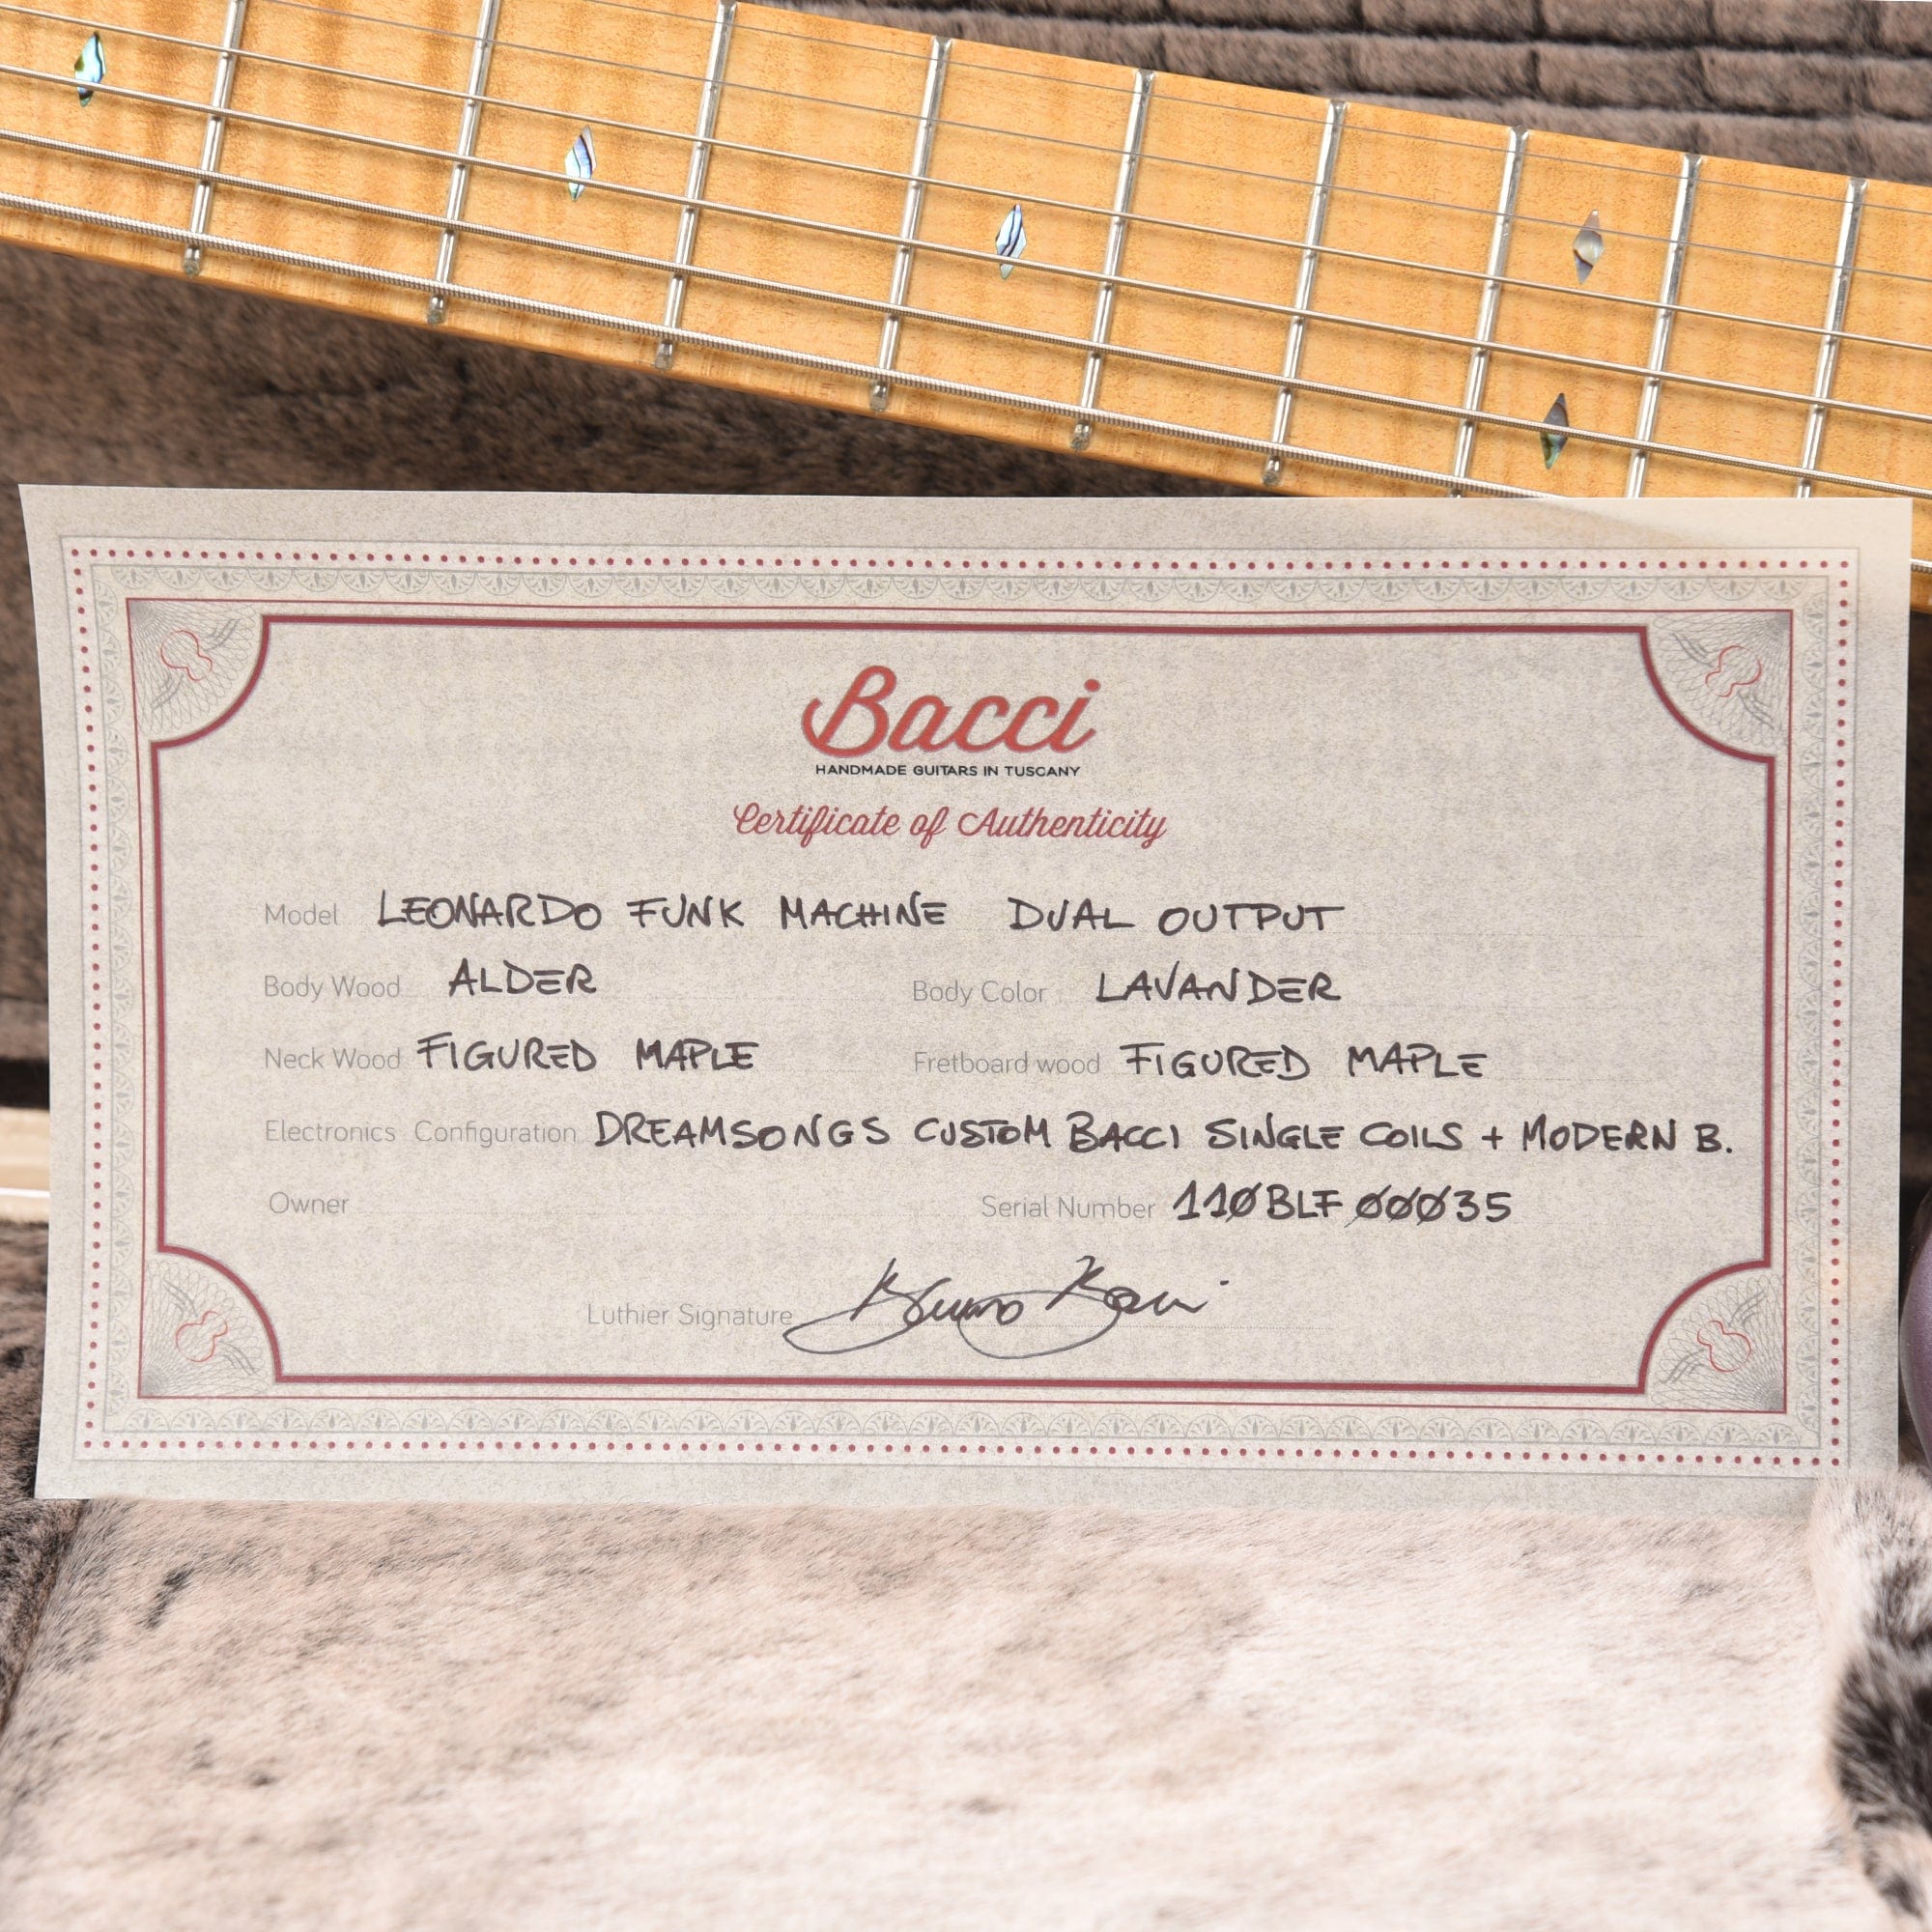 Bacci
HANDMADE GUITARS IN TUSCANY
Certificate of Authenticity
Model LEONARDO FUNK MACHINE DUAL OUTPUT
Body Wood ALDER Body Color LAVANDER
Neck Wood FIGURED MAPLE Fretboard wood FIGURED MAPLE
Electronics Configuration DREAMSONGS CUSTOM BACCI SINGLE COILS + MODERN B.
Owner Serial Number 110BLF00035
Luthier Signature Bruno Bacci